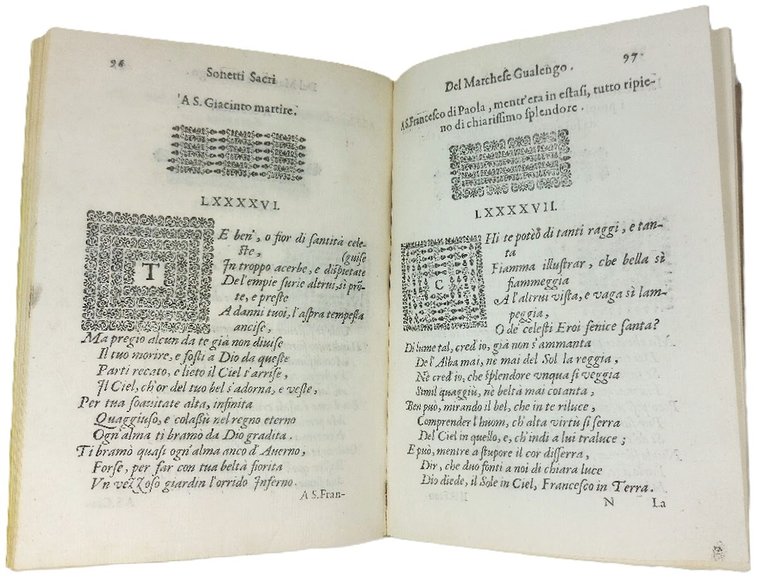 96
Sonetti Sacri
A S. Giacinto martire.
LXXXXVI.
TE ben', o fior di santità cele-
ste, (guise
In troppo acerbe, e dispietate
De l'empie furie altrui, sì prō-
te, e preste
A danni tuoi, l'aspra tempesta
ancise,
Ma pregio alcun da te già non divise
Il tuo morire, e fosti a Dio da queste
Parti recato, e lieto il Ciel t'arrise,
Il Ciel, ch'or del tuo bel s'adorna, e veste,
Per tua soavitate alta, infinita
Quaggiuso, e colassù nel regno eterno
Ogn'alma ti bramo da Dio gradita.
Ti bramò quasi ogn'alma anco d'Averno,
Forse, per far con tua beltà fiorita
Vn vezzoso giardin l'orrido Inferno.
A S. Fran-
97
Del Marchese Gualengo.
A S. Francesco di Paola, mentr'era in estasi, tutto ripie-
no di chiarissimo splendore.
LXXXXVII.
CHi te poteo di tanti raggi, e tan-
ta
Fiamma illustrar, che bella sì
fiammeggia
A l'altrui vista, e vaga sì lam-
peggia,
O de' celesti Eroi fenice santa?
Di lume tal, cred'io, già non s'ammanta
De l'Alba mai, ne mai del Sol la reggia,
Nè cred'io, che splendore unqua si veggia
Simil quaggiù, ne beltà mai cotanta,
Ben può, mirando il bel, che in te riluce,
Comprender l'huom, ch'alta virtù si serra
Del Ciel in quello, e, ch'indi a lui traluce;
E può, mentre a stupore il cor disserra,
Dir, che duo fonti a noi di chiara luce
Dio diede, il Sole in Ciel, Francesco in Terra.
N La